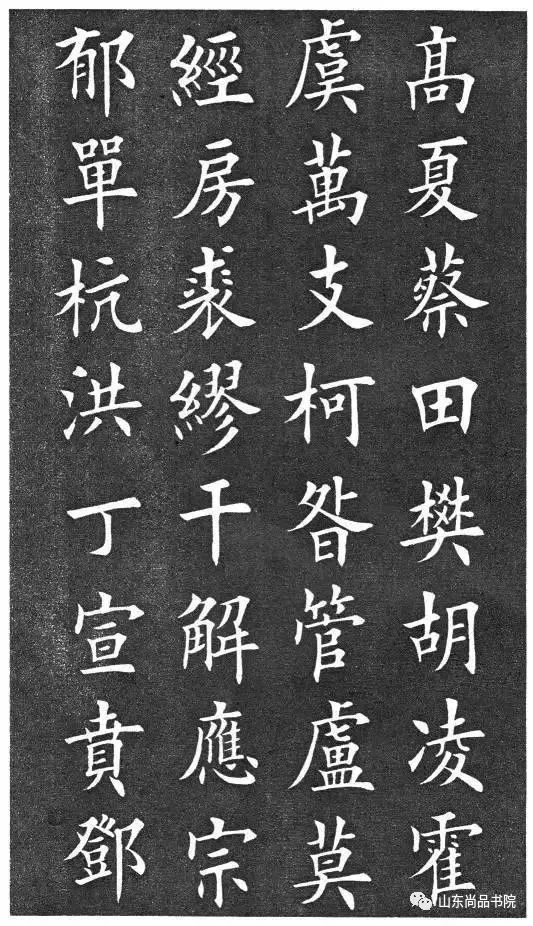 高夏蔡田樊胡凌霍
虞萬支柯昝管盧莫
經房裘繆干解應宗
郁單杭洪丁宣賁鄧
山东尚品书院